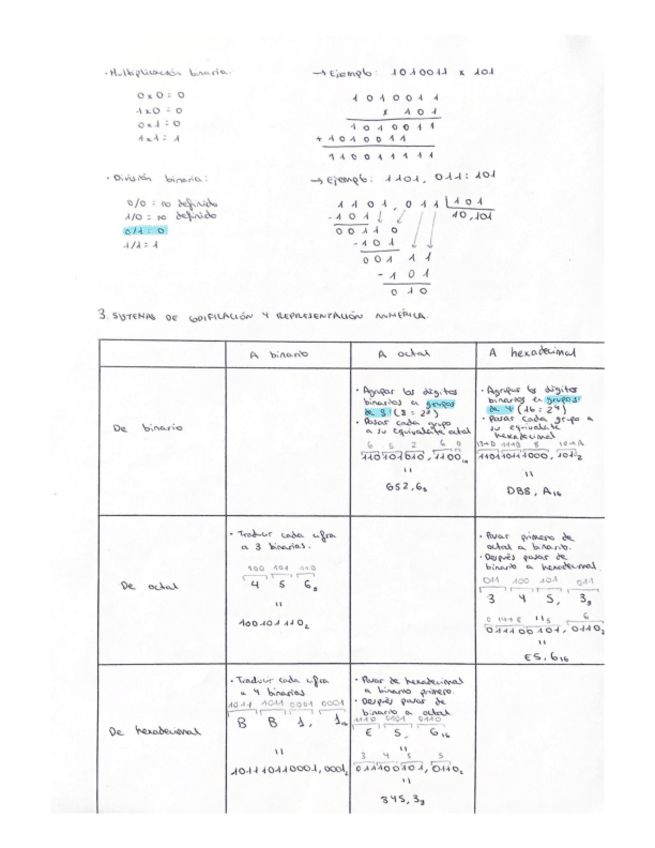 · Multiplicación binaria.
0 x 0 = 0
1 x 0 = 0
0 x 1 = 0
1 x 1 = 1
→ Ejemplo: 1010011 x 101
1 0 1 0 0 1 1
x 1 0 1
1 0 1 0 0 1 1
+ 1 0 1 0 0 1 1
1 1 0 0 1 1 1 1 1
· División binaria:
0/0 = no definido
1/0 = no definido
0/1 = 0
1/1 = 1
→ Ejemplo: 1101, 011 : 101
1 1 0 1, 0 1 1 | 1 0 1
- 1 0 1
10,101
0 0 1 1 0
- 1 0 1
0 0 1 1 1
- 1 0 1
0 1 0
3. SISTEMAS DE CODIFICACIÓN Y REPRESENTACIÓN NUMÉRICA.
A binario
A octal
A hexadecimal
De binario
· Agrupar los dígitos
binarios en grupos
de 3 (8 = 2³)
· Pasar cada grupo
a su equivalente octal
6 5 2 6 0
110101010, 1100
"
652,6₈
· Agrupar los dígitos
binarios en grupos
de 4 (16 = 2⁴)
· Pasar cada grupo a
su equivalente
hexadecimal
110110111000, 101₂
"
DB8, A₁₆
De octal
· Traducir cada cifra
a 3 binarias.
100 101 110
4 5 6₈
"
100101110₂
· Pasar primero de
octal a binario.
· Después pasar de
binario a hexadecimal.
011 100 101 011
3 4 5, 3₈
011100101, 0110₂
"
E5, 6₁₆
De hexadecimal
· Traducir cada cifra
a 4 binarias
1011 1011 0001 0001
B B 1, 1₁₆
"
101110110001,0001₂
· Pasar de hexadecimal
a binario primero.
· Después pasar de
binario a octal
1110 0101 0110
E 5, 6₁₆
"
3 4 5 3
011100101, 0110₂
"
345,3₈